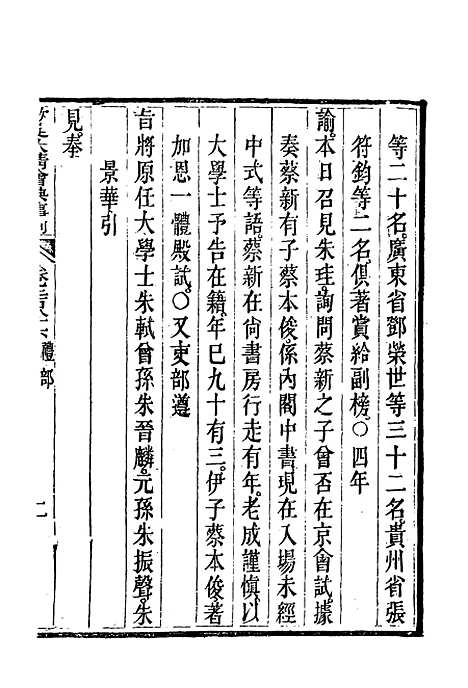 等二十名。廣東省鄧榮世等三十二名。貴州省張
符鈞等二名。俱著賞給副榜。○四年
諭。本日召見朱珪。詢問蔡新之子曾否在京會試。據
奏蔡新有子蔡本俊。係內閣中書。現在入場未經
中式等語。蔡新在尚書房行走有年。老成謹慎。以
大學士予告在籍。年巳九十有三。伊子蔡本俊著
加恩一體殿試。○又吏部遵
旨將原任大學士朱軾曾孫朱晉麟。元孫朱振聲。朱
景華引
見。奉
大清會典事例
禮部